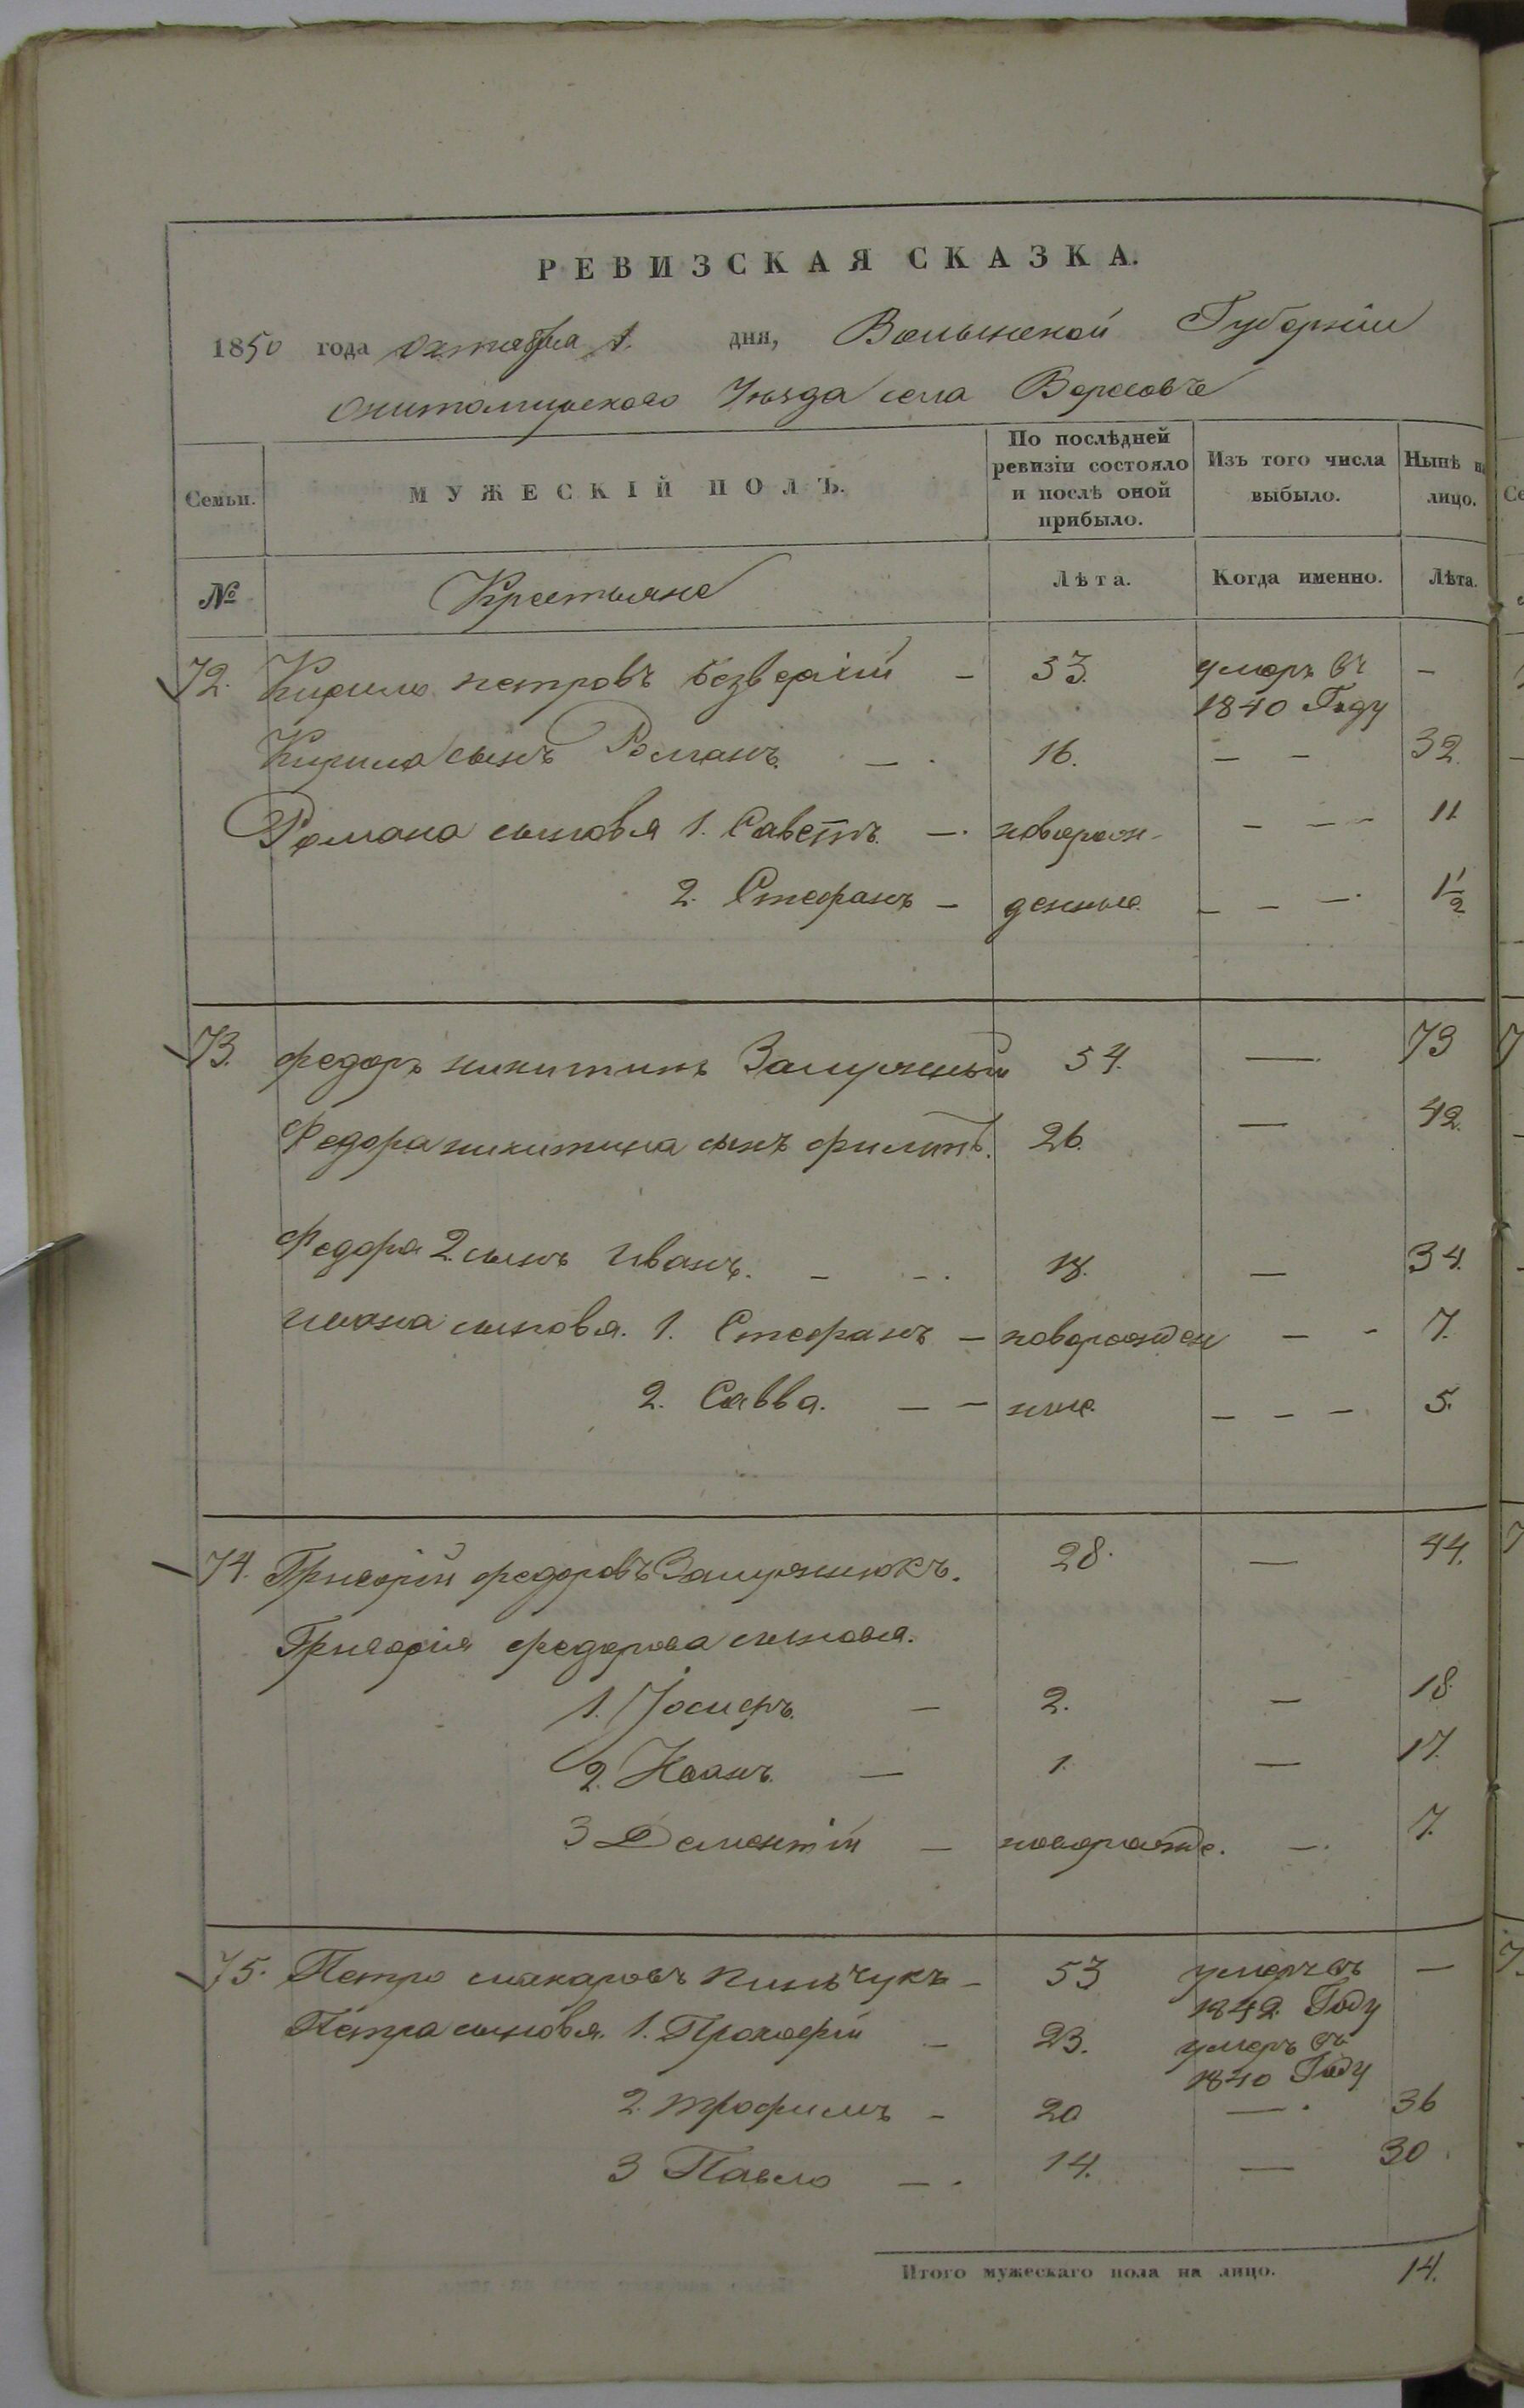 РЕВИЗСКАЯ СКАЗКА.
1850 года октября 1. дня, Волынской Губернии
житомирского Уезда села Ворсовъе
Семьи. МУЖЕСКІЙ ПОЛЪ. По послѣдней ревизіи состояло и послѣ оной прибыло. Изъ того числа выбыло. Нынѣ на лицо.
№ Крестьяне Лѣта. Когда именно. Лѣта.
72. Кирило петровъ безверхій – 33. умеръ въ –
1840 Году
Кирила сынъ Романъ. – . 16. – – 32.
Романа сыновья 1. Саветъ. – .новорож- – – – 11
2. Стефанъ – денные. – – – . 1 1/2
73. федоръ никитинъ 54. — 73
Федора никитина сынъ филипъ. 26. — 42.
Федора 2. сынъ иванъ. – – . 18. — 34.
ивана сыновья. 1. Стефанъ – новорожден – – 7.
2. Савва. – – ные. – – – 5.
74. Григорій федоровъ 28. — 44.
Григорія федорова сыновья.
1. Іосифъ. – 2. – 18.
2. Иванъ. — 1. — 17.
3 Дементій – новорожде. – . 7.
75. Петро макаровъ пинчукъ – 53 умеръ въ —
1842. Году
Петра сыновья. 1. Прокофій – 23. умеръ въ
1840 Году
2. трофимъ – 20 — . 36
3 Павло – . 14. — 30.
Итого мужескаго пола на лицо. 14.